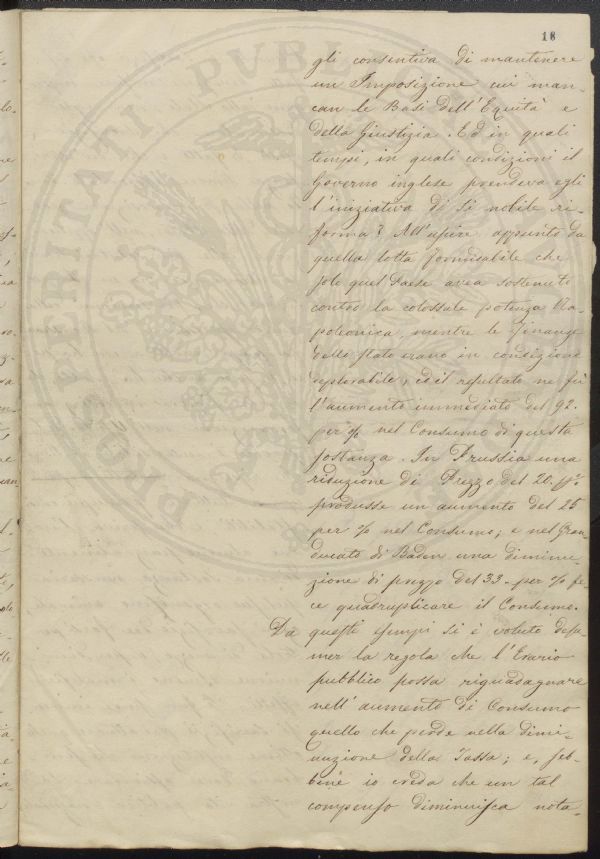 18
gli consentiva di mantenere
un Imposizione cui man-
can le Basi dell'Equità e
della Giustizia. Ed in quali
tempi, in quali condizioni il
Governo inglese prendeva egli
l'iniziativa di sì nobile ri-
forma? All'uscire appunto da
quella lotta formidabile che
solo quel Paese avea sostenuto
contro la colossale potenza Na-
poleonica, mentre le Finanze
dello stato erano in condizione
deplorabile, ed il resultato ne fù
l'aumento immediato del 92.
per % nel Consumo di questa
sostanza. In Prussia una
riduzione di Prezzo del 20.
produsse un aumento del 25
per % nel Consumo; e nel Gran-
ducato di Baden una diminu-
zione di prezzo del 33. per % fe-
ce quadruplicare il Consumo.
Da questi esempi si è voluto desu-
mer la regola che l'Erario
pubblico possa riguadagnare
nell'aumento di Consumo
quello che perde nella dimi-
nuzione della Tassa; e, seb-
bene io creda che un tal
compenso diminuisca nota-
PROSPERITATI PUBL